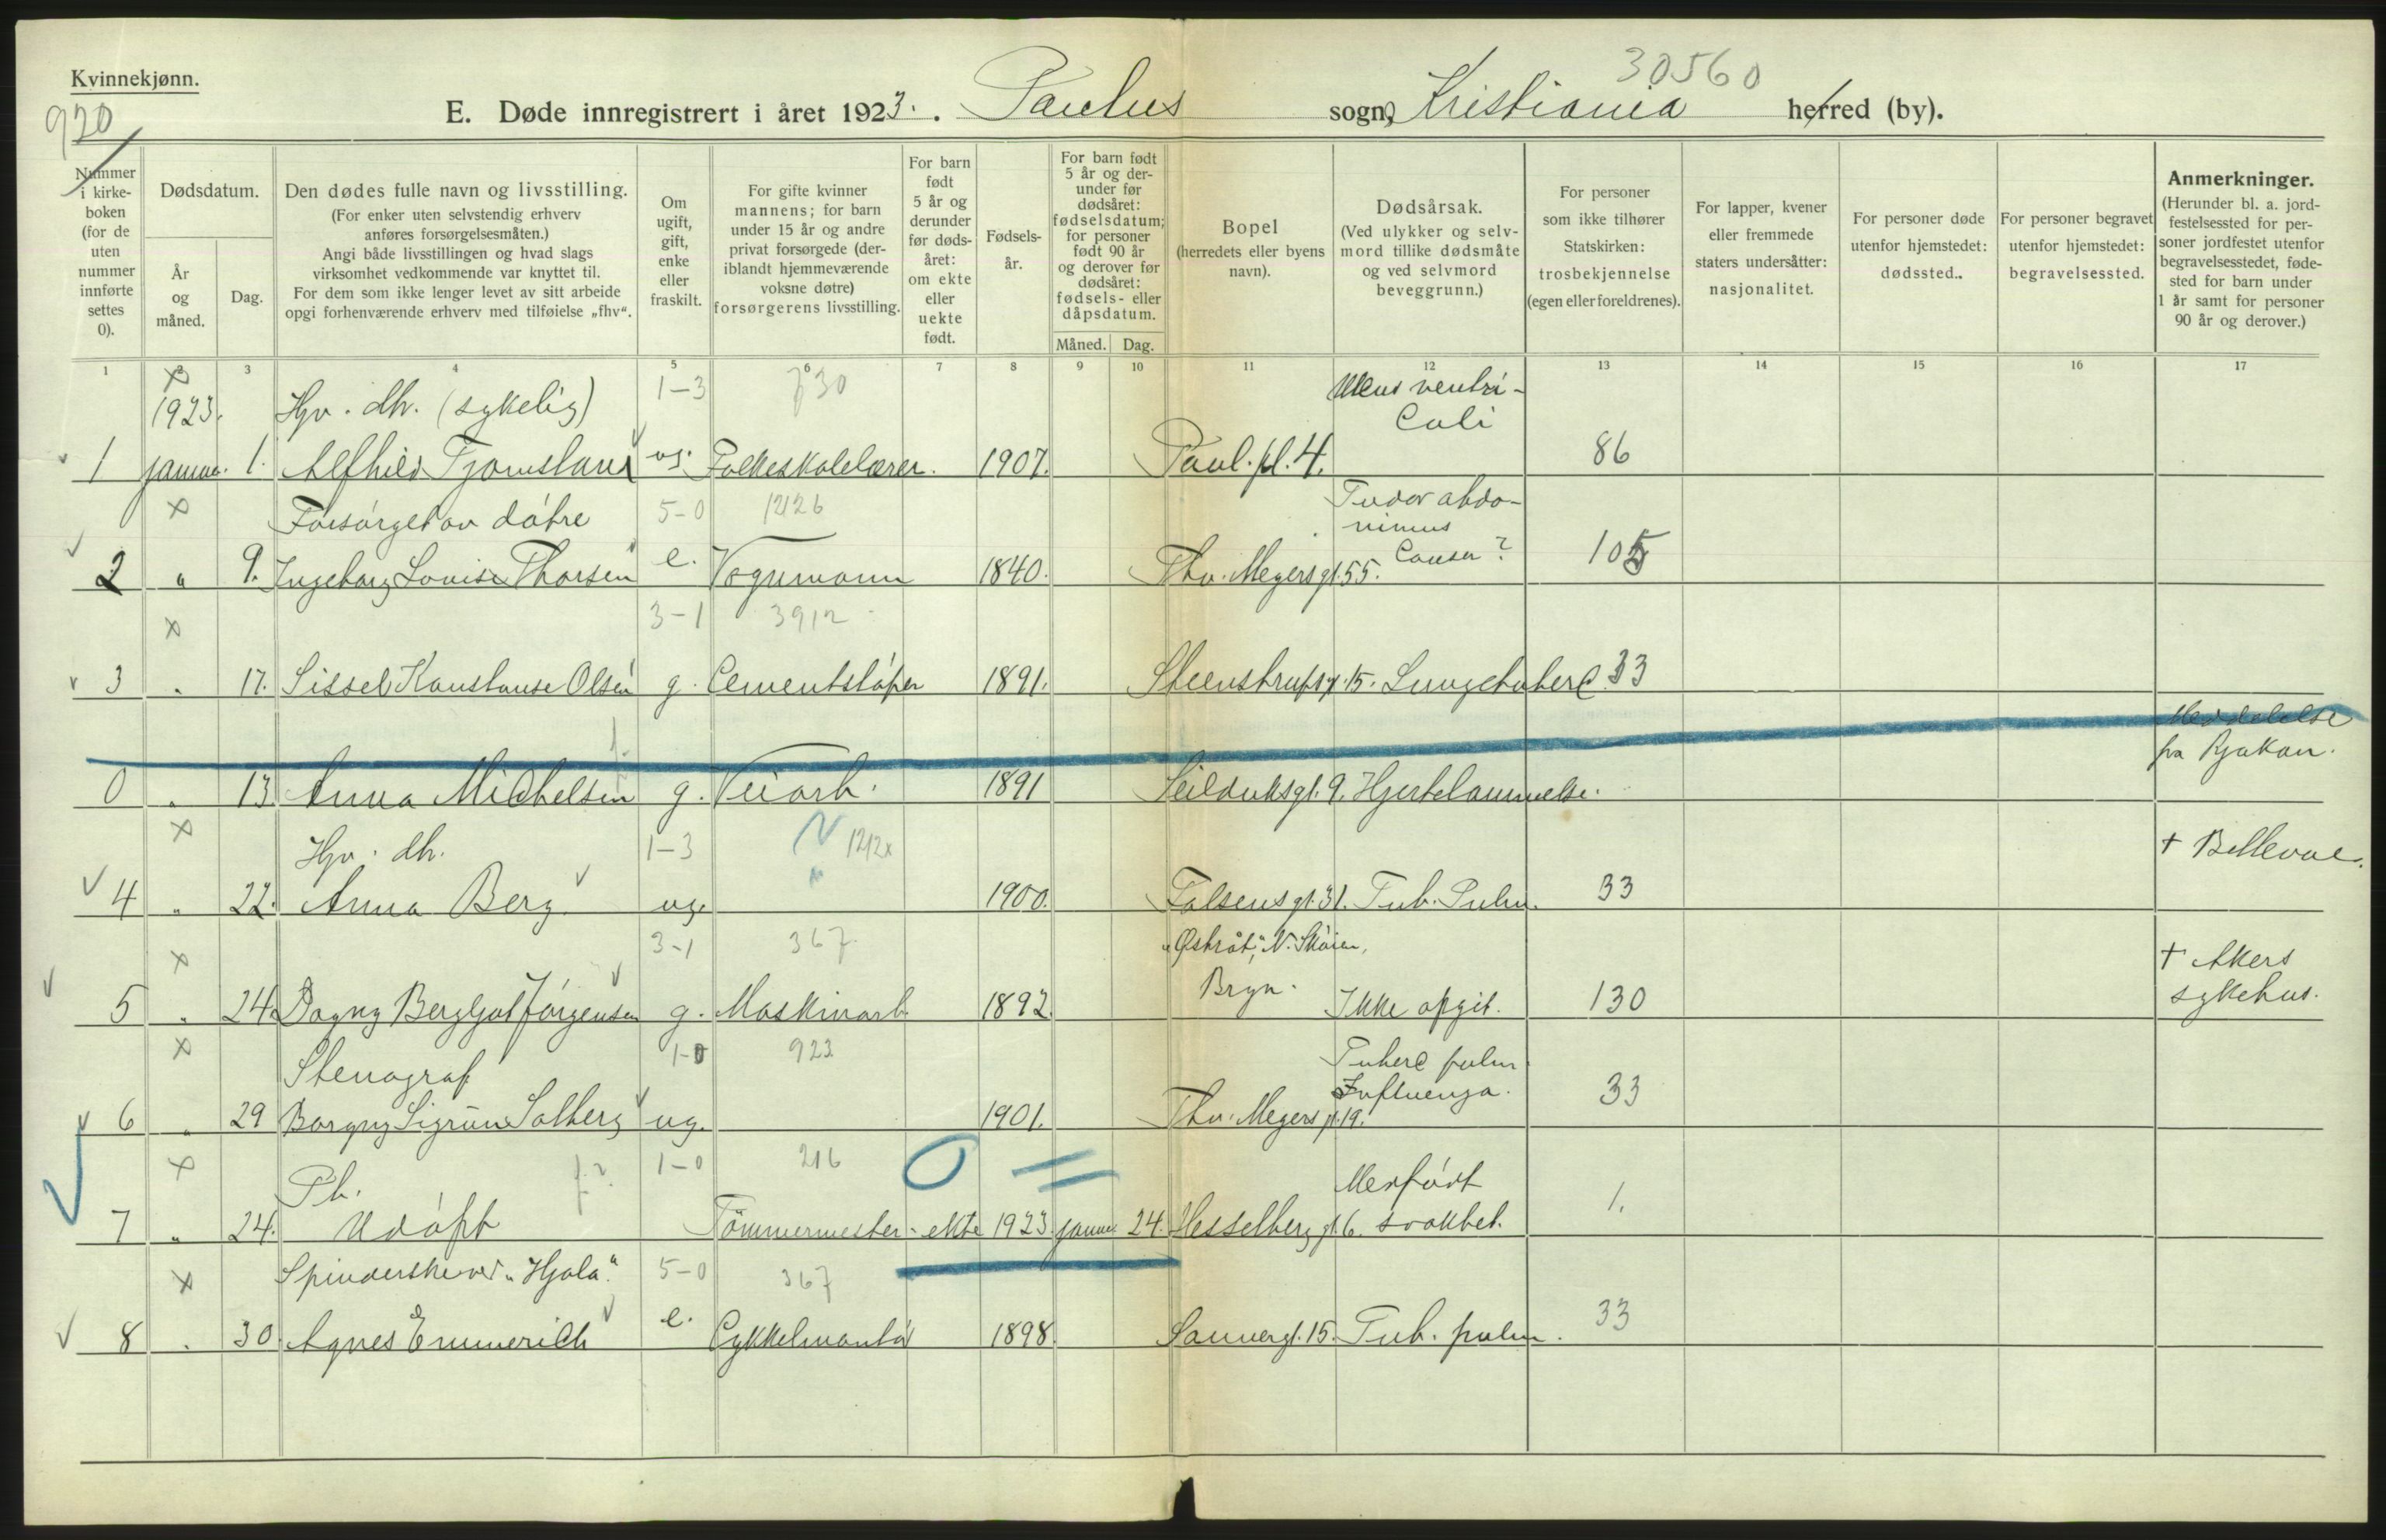 Kvinnekjønn.
920
30560
E. Døde innregistrert i året 1923. Paulus sogn, Kristiania herred (by).
Nummer i kirkeboken (for de uten nummer innførte settes 0).
Dødsdatum.
År og måned.
Dag.
Den dødes fulle navn og livsstilling.
(For enker uten selvstendig erhverv anføres forsørgelsesmåten.)
Angi både livsstillingen og hvad slags virksomhet vedkommende var knyttet til.
For dem som ikke lenger levet av sitt arbeide opgi forhenværende erhverv med tilføielse „fhv“.
Om ugift, gift, enke eller fraskilt.
For gifte kvinner mannens; for barn under 15 år og andre privat forsørgede (deriblandt hjemmeværende voksne døtre) forsørgerens livsstilling.
For barn født 5 år og derunder før dødsåret: om ekte eller uekte født.
Fødselsår.
For barn født 5 år og derunder før dødsåret: fødselsdatum; for personer født 90 år og derover før dødsåret: fødsels- eller dåpsdatum.
Måned. Dag.
Bopel
(herredets eller byens navn).
Dødsårsak.
(Ved ulykker og selvmord tillike dødsmåte og ved selvmord beveggrunn.)
For personer som ikke tilhører Statskirken: trosbekjennelse (egen eller foreldrenes).
For lapper, kvener eller fremmede staters undersåtter: nasjonalitet.
For personer døde utenfor hjemstedet: dødssted.
For personer begravet utenfor hjemstedet: begravelsessted.
Anmerkninger.
(Herunder bl. a. jordfestelsessted for personer jordfestet utenfor begravelsesstedet, fødested for barn under 1 år samt for personer 90 år og derover.)
1 2 3 4 5 6 7 8 9 10 11 12 13 14 15 16 17
1923. Hjv. dtr. (sykelig) 1-3 730 Ulcus ventri-
culi
1 januar. 1. Alfhild Tjomsland ug. Folkeskolelærer. 1907. Paul. pl. 4. 86
x Forsørget av døtre 5-0 1226 Tudor abdo-
minus
2 " 9. Ingeborg Louise Thorsen e. Vognmann 1840. Thv. Meyersgt. 55. Cancer? 105
x 3-1 3912
3 " 17. Sissel Konstanse Olsen g. Cementstøper 1891. Steenstrupsgt. 15. Lungetuberc. 33
Meddelelse
fra Rjukan.
0 " 13. Anna Michelsen g. Veiarb. 1891 Seilduksgt. 9. Hjertelammelse.
x Hjv. dtr. 1-3 N 1212x + Bellevue.
4 " 22. Anna Berg ug. " 1900. Falsensgt. 31. Tub. Pulm. 33
x 3-1 367 „Østråt“, N. Skøien, + Akers
5 " 24. Dagny Bergljot Jørgensen g. Maskinarb. 1892. Bryn. Ikke opgit. 130 sykehus.
x Stenograf 1-0 923 Tuberc pulm
Influenza.
6 " 29 Borgny Sigrun Solberg ug. 1901. Thv. Meyers gt. 19. 33
x Pk. 1-0 216 0 = Menført
7 " 24. Udøpt Tömmermester ekte 1923 januar 24. Hesselberg gt. 6. svakhet. 1.
x Spinderske ved „Hjula“. 5-0 367
8 " 30. Agnes Emmerich e. Cykkelmontør 1898. Sannergt. 15. Tub. pulm. 33